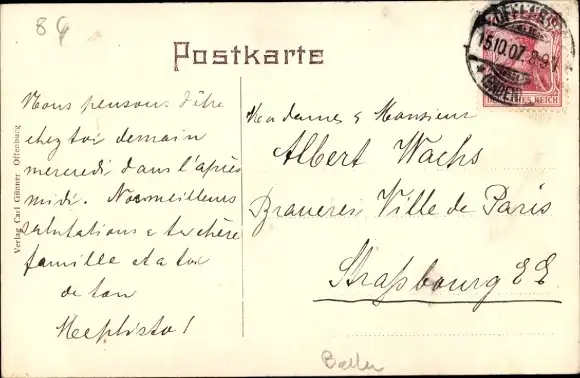 8
Postkarte
OFFENBURG
15.10.07. 8-9V
* (BADEN)
DEUTSCHES REICH
Verlag Carl Günner Offenburg
Nous pensons d'être
chez toi demain
mercredi dans l'après
midi. Nos meilleures
salutations à ta chère
famille et à toi
de ton
Mephisto!
Madame & Monsieur
Albert Wachs
Brauerei Ville de Paris
Straßbourg E E